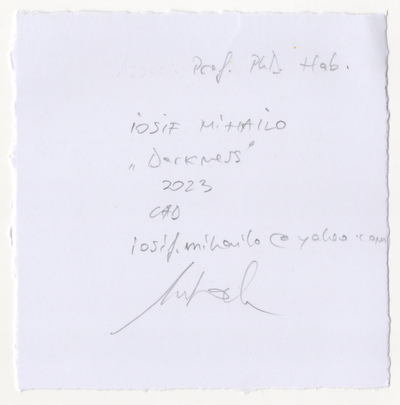 Prof. PhD. Hab.
iosif MiHAiLO
„Darkness"
2023
CAD
iosif.mihailo@yahoo.com